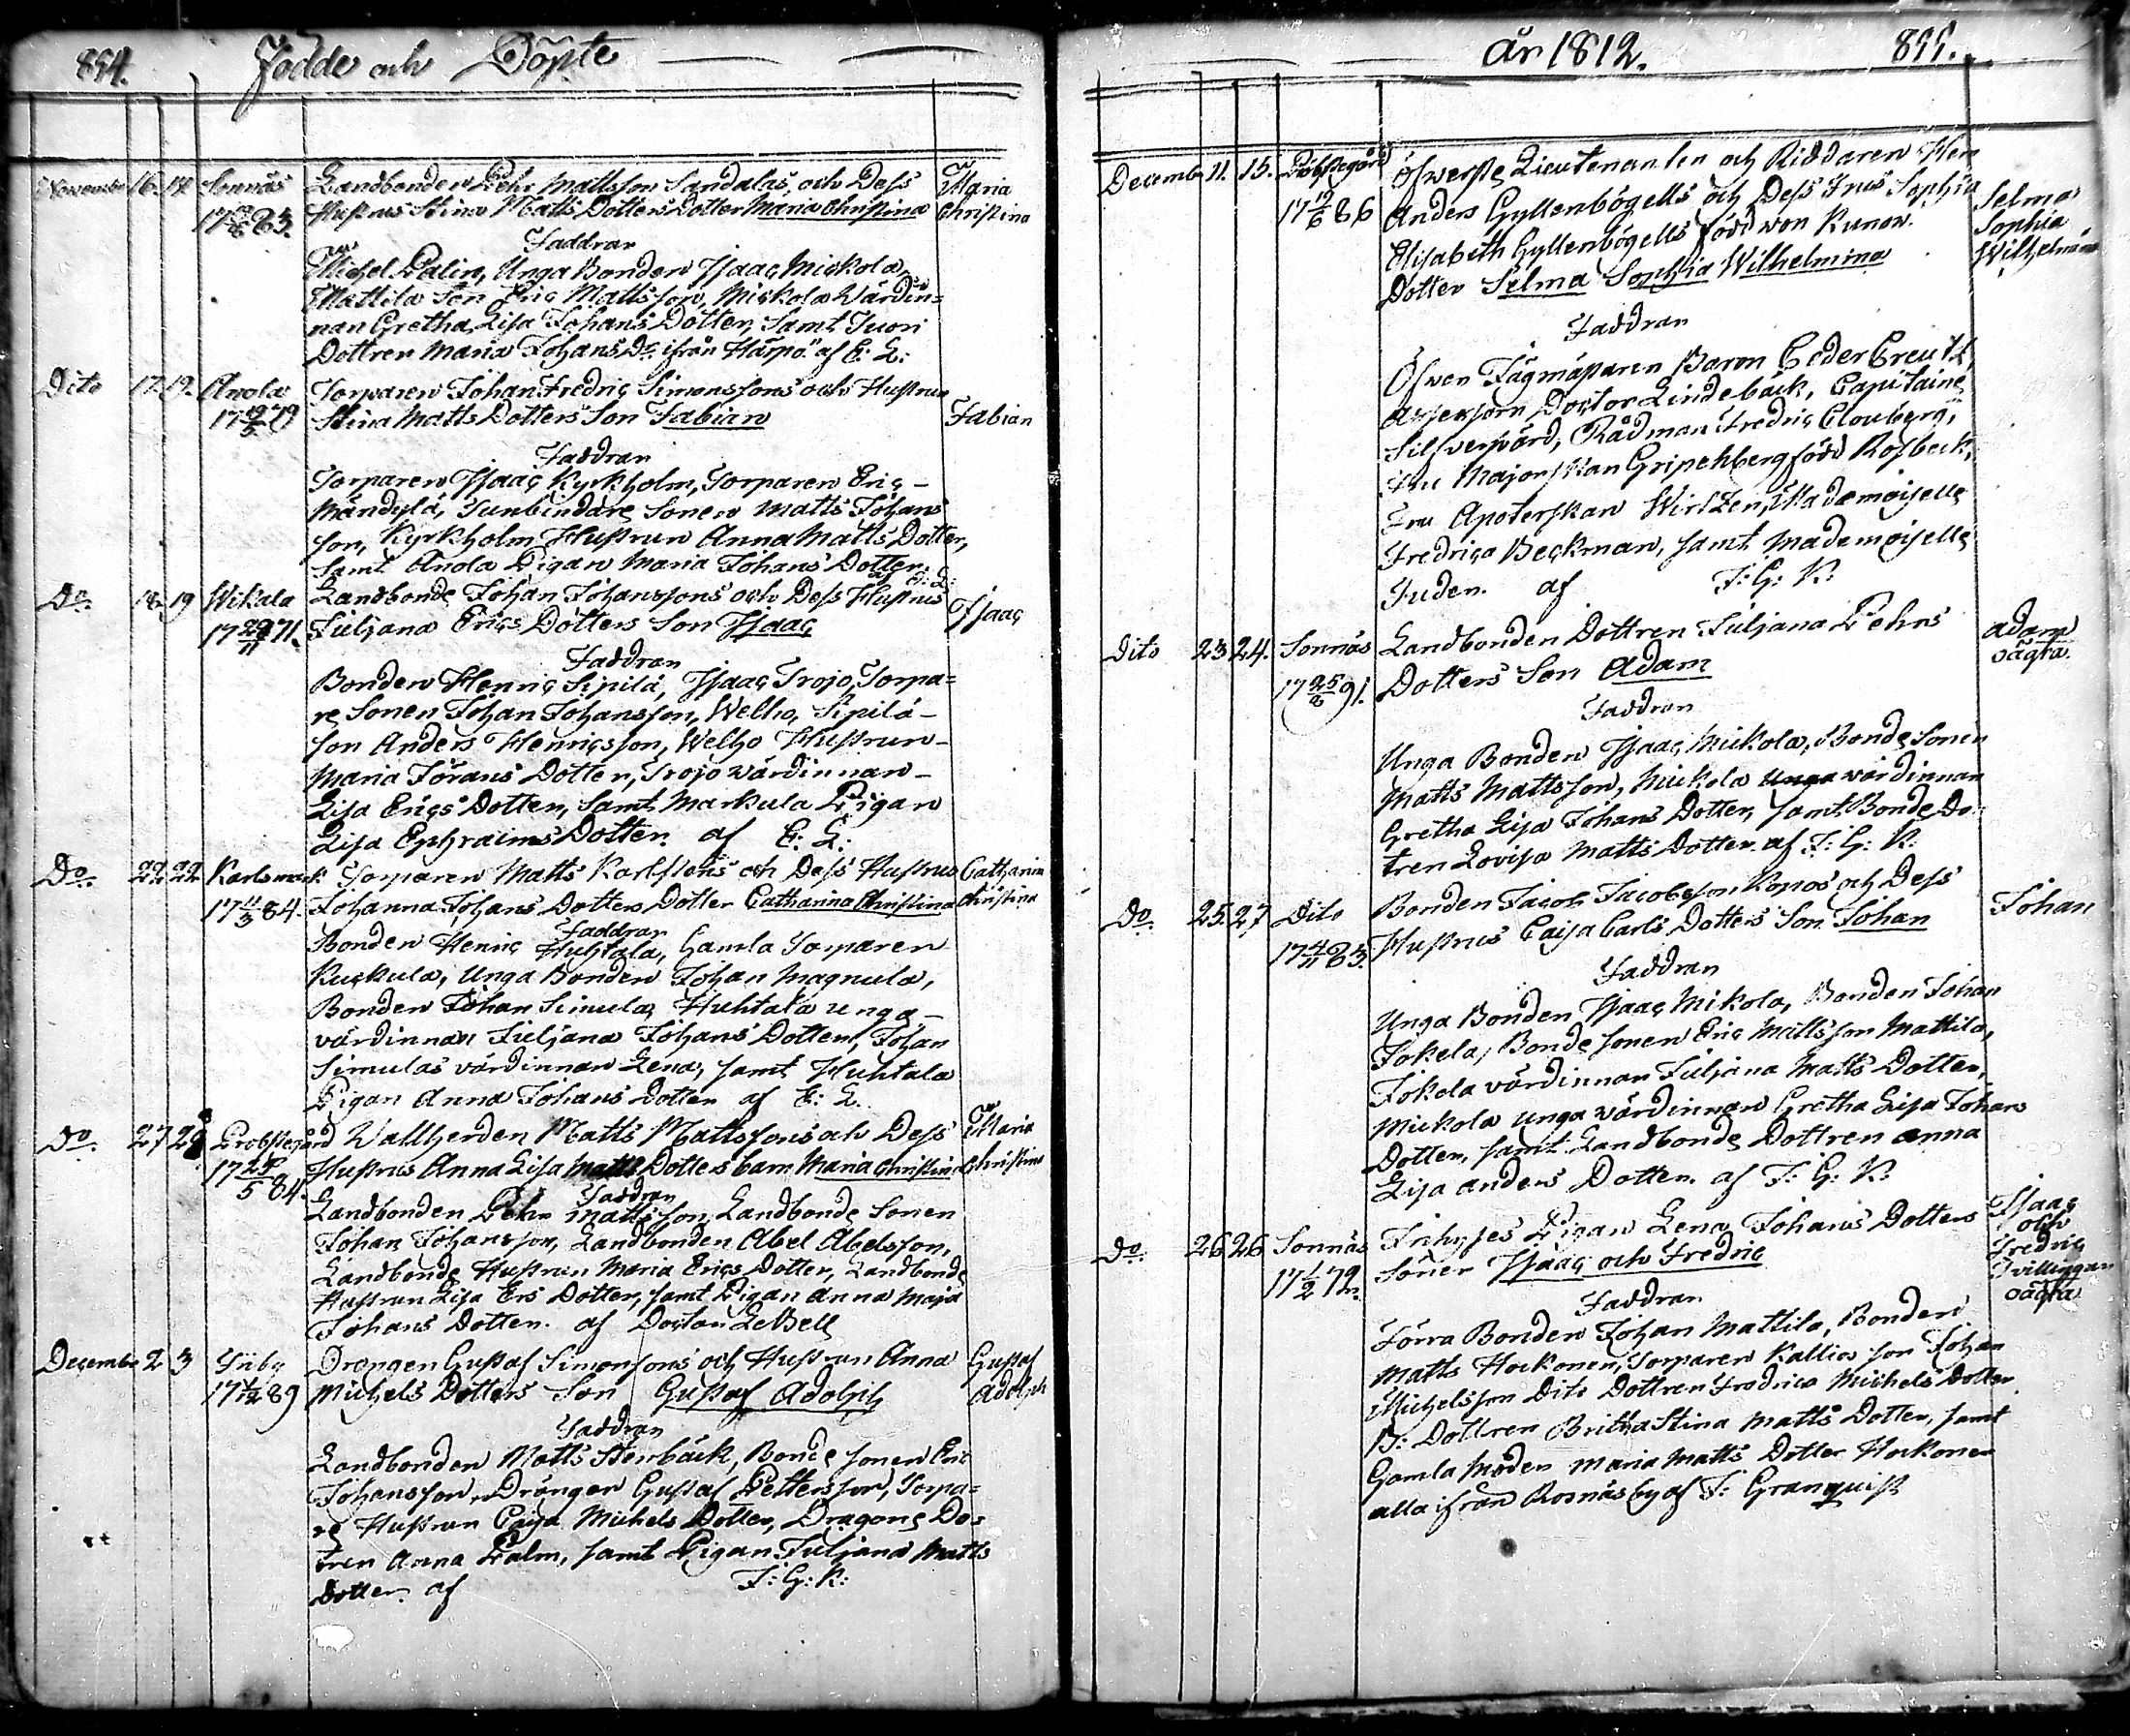 894. Födde och Döpte
November 16. 17. Sonnäs Landbonden Pehr Mattsson Sandalas, och Dess Maria
17 83. Hustrus Stina Matts Dotters Dotter Maria Christina Christina
Faddrar
Michel Palin, Unga Bonden Isaac Mickola,
Mattila Son Eric Mattsson, Mickola Värdin=
nan Gretha Lisa Johans Dotter, Samt Juori
Dottren Maria Johans Dr ifrån Härpö af E: L:
Dito 17. 19. Anola Torparen Johan Fredric Simonssons och Hustrun
17 19/5 79 Stina Matts Dotters Son Fabian Fabian
Faddrar
Torparen Isaac Kyrkholm, Torparen Eric
Mändylä, Tunbindare Sonen Matts Johans
son, Kyrkholm Hustrun Anna Matts Dotter,
Samt Anola Pigan Maria Johans Dotter.
af E: L:
Do. 18 19 Wikala Landbonde Johan Johanssons och Dess Hustrus Isaac
17 29/11 71. Juliana Erics Dotters Son Isaac
Faddrar
Bonden Henric Sipilä, Isaac Trojo, Torpa=
re Sonen Johan Johansson, Welho, Sipilä
son Anders Henricsson, Welho Hustrun
Maria Görans Dotter, Trojo värdinnan
Lisa Erics Dotter, Samt Markula Pigan
Lisa Ephraims Dotter. af E: L:
Do. 22. 22. Karlsmark Torparen Matts Karlstens och Dess Hustrus Catharina
17 11/3 84. Johanna Johans Dotters Dotter Catharina Christina Christina
Faddrar
Bonden Henric Huhtala, Gamla Torparen
Kuckula, Unga Bonden Johan Magnula,
Bonden Johan Simula, Huhtala unga
värdinnan Juliana Johans Dotter, Johan
Simulas värdinnan Lena, samt Huhtala
Pigan Anna Johans Dotter af E: L.
Do. 27 28 Probstegård Wallherden Matts Mattssons och Dess Maria
17 25/5 84. Hustrus Anna Lisa Matts Dotters barn Maria Christina Christina
Faddrar
Landbonden Pehr Mattsson, Landbonde Sonen
Johan Johansson, Landbonden Abel Abelsson,
Landbonde Hustrun Maria Erics Dotter, Landbonde
Hustrun Lisa Ers Dotter, samt Pigan Anna Maja
Johans Dotter. af Doctor LeBell
December 2 3 Inby Drängen Gustaf Simonssons och Hustrun Anna Gustaf
17 1/12 89 Michels Dotters Son Gustaf Adolph Adolph
Faddrar
Landbonden Matts Stenbäck, Bonde sonen Eric
Johansson, Drängen Gustaf Pettersson, Torpa=
re Hustrun Caisa Michels Dotter, Dragone Do=
tren Anna Palm, samt Pigan Juliana Matts
Dotter. af F: G: K:
år 1812. 895.
December 11. 15. Probstegård Öfwerste Lieutenanten och Riddaren Herr
17 19/6 86 Anders Gyllenbögells och Dess Frus Sophia Selma
Elisabeth Gyllenbögells född von Kunow. Sophia
Dotter Selma Sophia Wilhelmina Wilhelmina
Faddrar
Öfwer Jägmästaren Baron CederCreutz,
Assessorn Doctor Lindebäck, Capitaine
Silfversvärd, Rådman Fredric Clouberg,
Fru Majorskan Gripenberg född Rosbeck,
Fru Apotekskan Wirtzen, Mademoiselle
Fredrica Beckman, samt Mademoiselle
Juden. af F: G: K:
Dito 23 24. Sonnäs Landbonden Dottren Juliana Pehrs Adam
17 25/8 91. Dotters Son Adam oägta.
Faddrar
Unga Bonden Isaac Mickola, Bonde Sonen
Matts Mattsson, Mickola värdinnan
Gretha Lisa Johans Dotter, samt Bonde Do
tren Lovisa Matts Dotter. af F: G: K:
Do. 25. 27. Dito Bonden Jacob Jacobsson Kopos och Dess Johan
17 4/11 83. Hustrus Caisa Carls Dotters Son Johan
Faddrar
Unga Bonden Isaac Mikola, Bonden Johan
Jokela, Bonde sonen Eric Mattsson Mattila,
Jokela värdinnan Juliana Matts Dotter,
Mickola unga värdinnan Gretha Lisa Johans
Dotter, samt Landbonde Dottren Anna
Lisa Anders Dotter. af F: G: K:
Do. 26 26 Sonnäs Inhyses Pigan Lena Johans Dotters Isaac
17 1/2 79. Söner Isaac och Fredric och
Fredric
Tvillingar
oägta
Faddrar
Förra Bonden Johan Mattila, Bonden
Matts Hockonen, Torparen Kallio son Johan
Michelsson Dito Dottren Fredrica Michels Dotter
B: Dottren Britha Stina Matts Dotter, samt
Gamla Moden Maria Matts Dotter Hockonen
alla ifrån Rosnäs by af F: Granquist